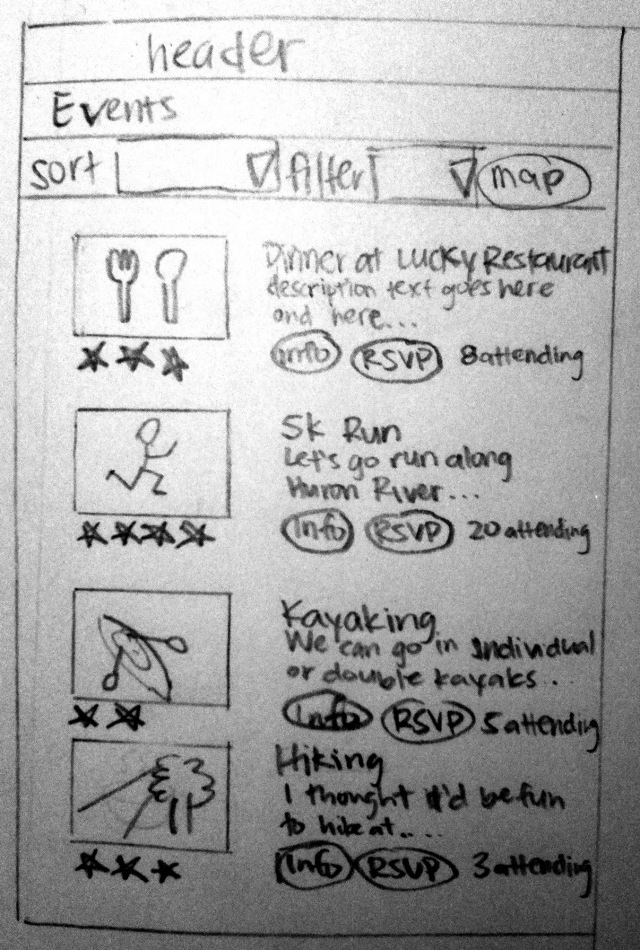 header
Events
sort filter map
Dinner at Lucky Restaurant
description text goes here
and here...
Info RSVP 8 attending
5k Run
Let's go run along
Huron River...
Info RSVP 20 attending
Kayaking
We can go in individual
or double kayaks...
Info RSVP 5 attending
Hiking
I thought it'd be fun
to hike at....
Info RSVP 3 attending